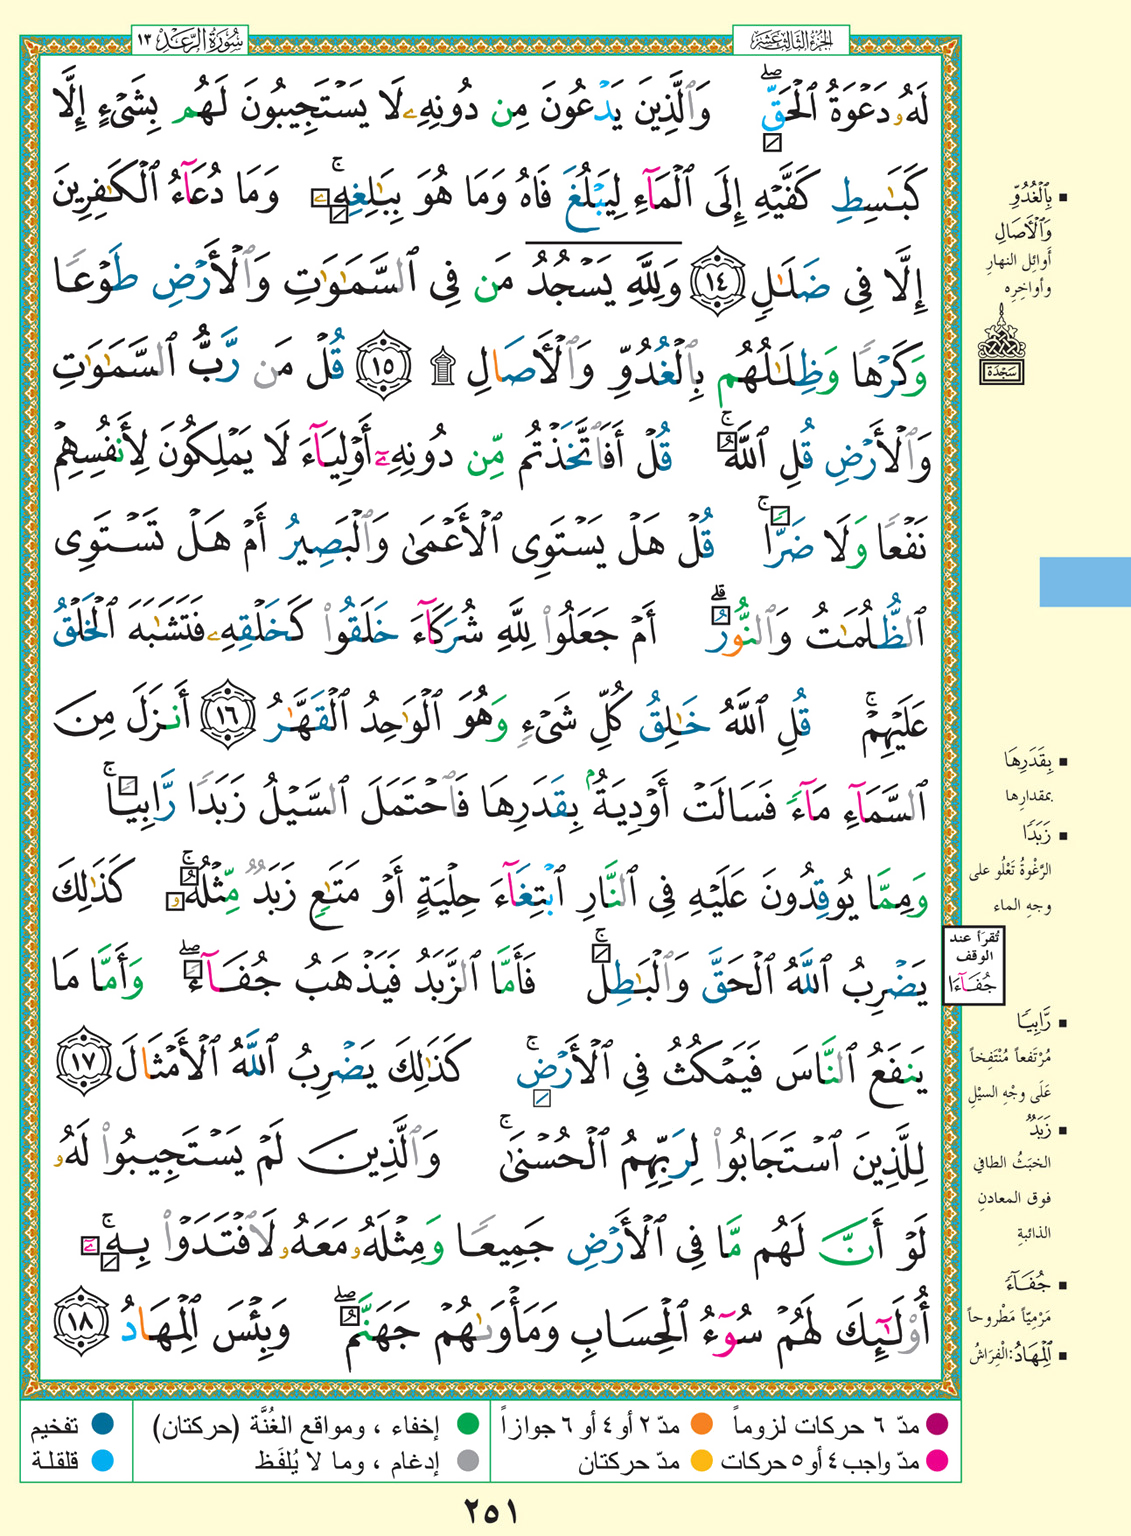 سُورَةُ الرَّعْدِ ١٣
الجُزْءُ الثَّالِثَ عَشَرَ
لَهُۥ دَعْوَةُ ٱلْحَقِّ ۖ وَٱلَّذِينَ يَدْعُونَ مِن دُونِهِۦ لَا يَسْتَجِيبُونَ لَهُم بِشَىْءٍ إِلَّا
كَبَـٰسِطِ كَفَّيْهِ إِلَى ٱلْمَآءِ لِيَبْلُغَ فَاهُ وَمَا هُوَ بِبَـٰلِغِهِۦ ۚ وَمَا دُعَآءُ ٱلْكَـٰفِرِينَ
إِلَّا فِى ضَلَـٰلٍ ١٤ وَلِلَّهِ يَسْجُدُ مَن فِى ٱلسَّمَـٰوَٰتِ وَٱلْأَرْضِ طَوْعًا
وَكَرْهًا وَظِلَـٰلُهُم بِٱلْغُدُوِّ وَٱلْـَٔاصَالِ ۩ ١٥ قُلْ مَن رَّبُّ ٱلسَّمَـٰوَٰتِ
وَٱلْأَرْضِ قُلِ ٱللَّهُ ۚ قُلْ أَفَٱتَّخَذْتُم مِّن دُونِهِۦٓ أَوْلِيَآءَ لَا يَمْلِكُونَ لِأَنفُسِهِمْ
نَفْعًا وَلَا ضَرًّا ۚ قُلْ هَلْ يَسْتَوِى ٱلْأَعْمَىٰ وَٱلْبَصِيرُ أَمْ هَلْ تَسْتَوِى
ٱلظُّلُمَـٰتُ وَٱلنُّورُ ۗ أَمْ جَعَلُوا۟ لِلَّهِ شُرَكَآءَ خَلَقُوا۟ كَخَلْقِهِۦ فَتَشَـٰبَهَ ٱلْخَلْقُ
عَلَيْهِمْ ۚ قُلِ ٱللَّهُ خَـٰلِقُ كُلِّ شَىْءٍ وَهُوَ ٱلْوَٰحِدُ ٱلْقَهَّـٰرُ ١٦ أَنزَلَ مِنَ
ٱلسَّمَآءِ مَآءً فَسَالَتْ أَوْدِيَةٌۢ بِقَدَرِهَا فَٱحْتَمَلَ ٱلسَّيْلُ زَبَدًا رَّابِيًا ۚ
وَمِمَّا يُوقِدُونَ عَلَيْهِ فِى ٱلنَّارِ ٱبْتِغَآءَ حِلْيَةٍ أَوْ مَتَـٰعٍ زَبَدٌ مِّثْلُهُۥ ۚ كَذَٰلِكَ
يَضْرِبُ ٱللَّهُ ٱلْحَقَّ وَٱلْبَـٰطِلَ ۚ فَأَمَّا ٱلزَّبَدُ فَيَذْهَبُ جُفَآءً ۖ وَأَمَّا مَا
يَنفَعُ ٱلنَّاسَ فَيَمْكُثُ فِى ٱلْأَرْضِ ۚ كَذَٰلِكَ يَضْرِبُ ٱللَّهُ ٱلْأَمْثَالَ ١٧
لِلَّذِينَ ٱسْتَجَابُوا۟ لِرَبِّهِمُ ٱلْحُسْنَىٰ ۚ وَٱلَّذِينَ لَمْ يَسْتَجِيبُوا۟ لَهُۥ
لَوْ أَنَّ لَهُم مَّا فِى ٱلْأَرْضِ جَمِيعًا وَمِثْلَهُۥ مَعَهُۥ لَٱفْتَدَوْا۟ بِهِۦٓ ۚ
أُو۟لَـٰٓئِكَ لَهُمْ سُوٓءُ ٱلْحِسَابِ وَمَأْوَىٰهُمْ جَهَنَّمُ ۖ وَبِئْسَ ٱلْمِهَادُ ١٨
بِٱلْغُدُوِّ
وَٱلْـَٔاصَالِ
أوائِل النهارِ
وأواخِرِه
سَجْدَة
بِقَدَرِهَا
بمقدارِها
زَبَدًا
الرَّغْوةُ تَعْلُو على
وجهِ الماء
تُقرَأ عند
الوقف
جُفَآءَا
رَّابِيًا
مُرْتَفعاً مُنْتَفِخاً
عَلَى وجْهِ السيْلِ
زَبَدٌ
الخبَثُ الطافي
فوق المعادنِ
الذائبةِ
جُفَآءً
مَرْمِيّاً مَطْروحاً
ٱلْمِهَادُ: الْفِرَاشُ
مدّ ٦ حركات لزوماً
مدّ ٢ أو ٤ أو ٦ جوازاً
إخفاء ، ومواقع الغُنَّة (حركتان)
تفخيم
مدّ واجب ٤ أو ٥ حركات
مدّ حركتان
إدغام ، وما لا يُلفَظ
قلقلة
٢٥١